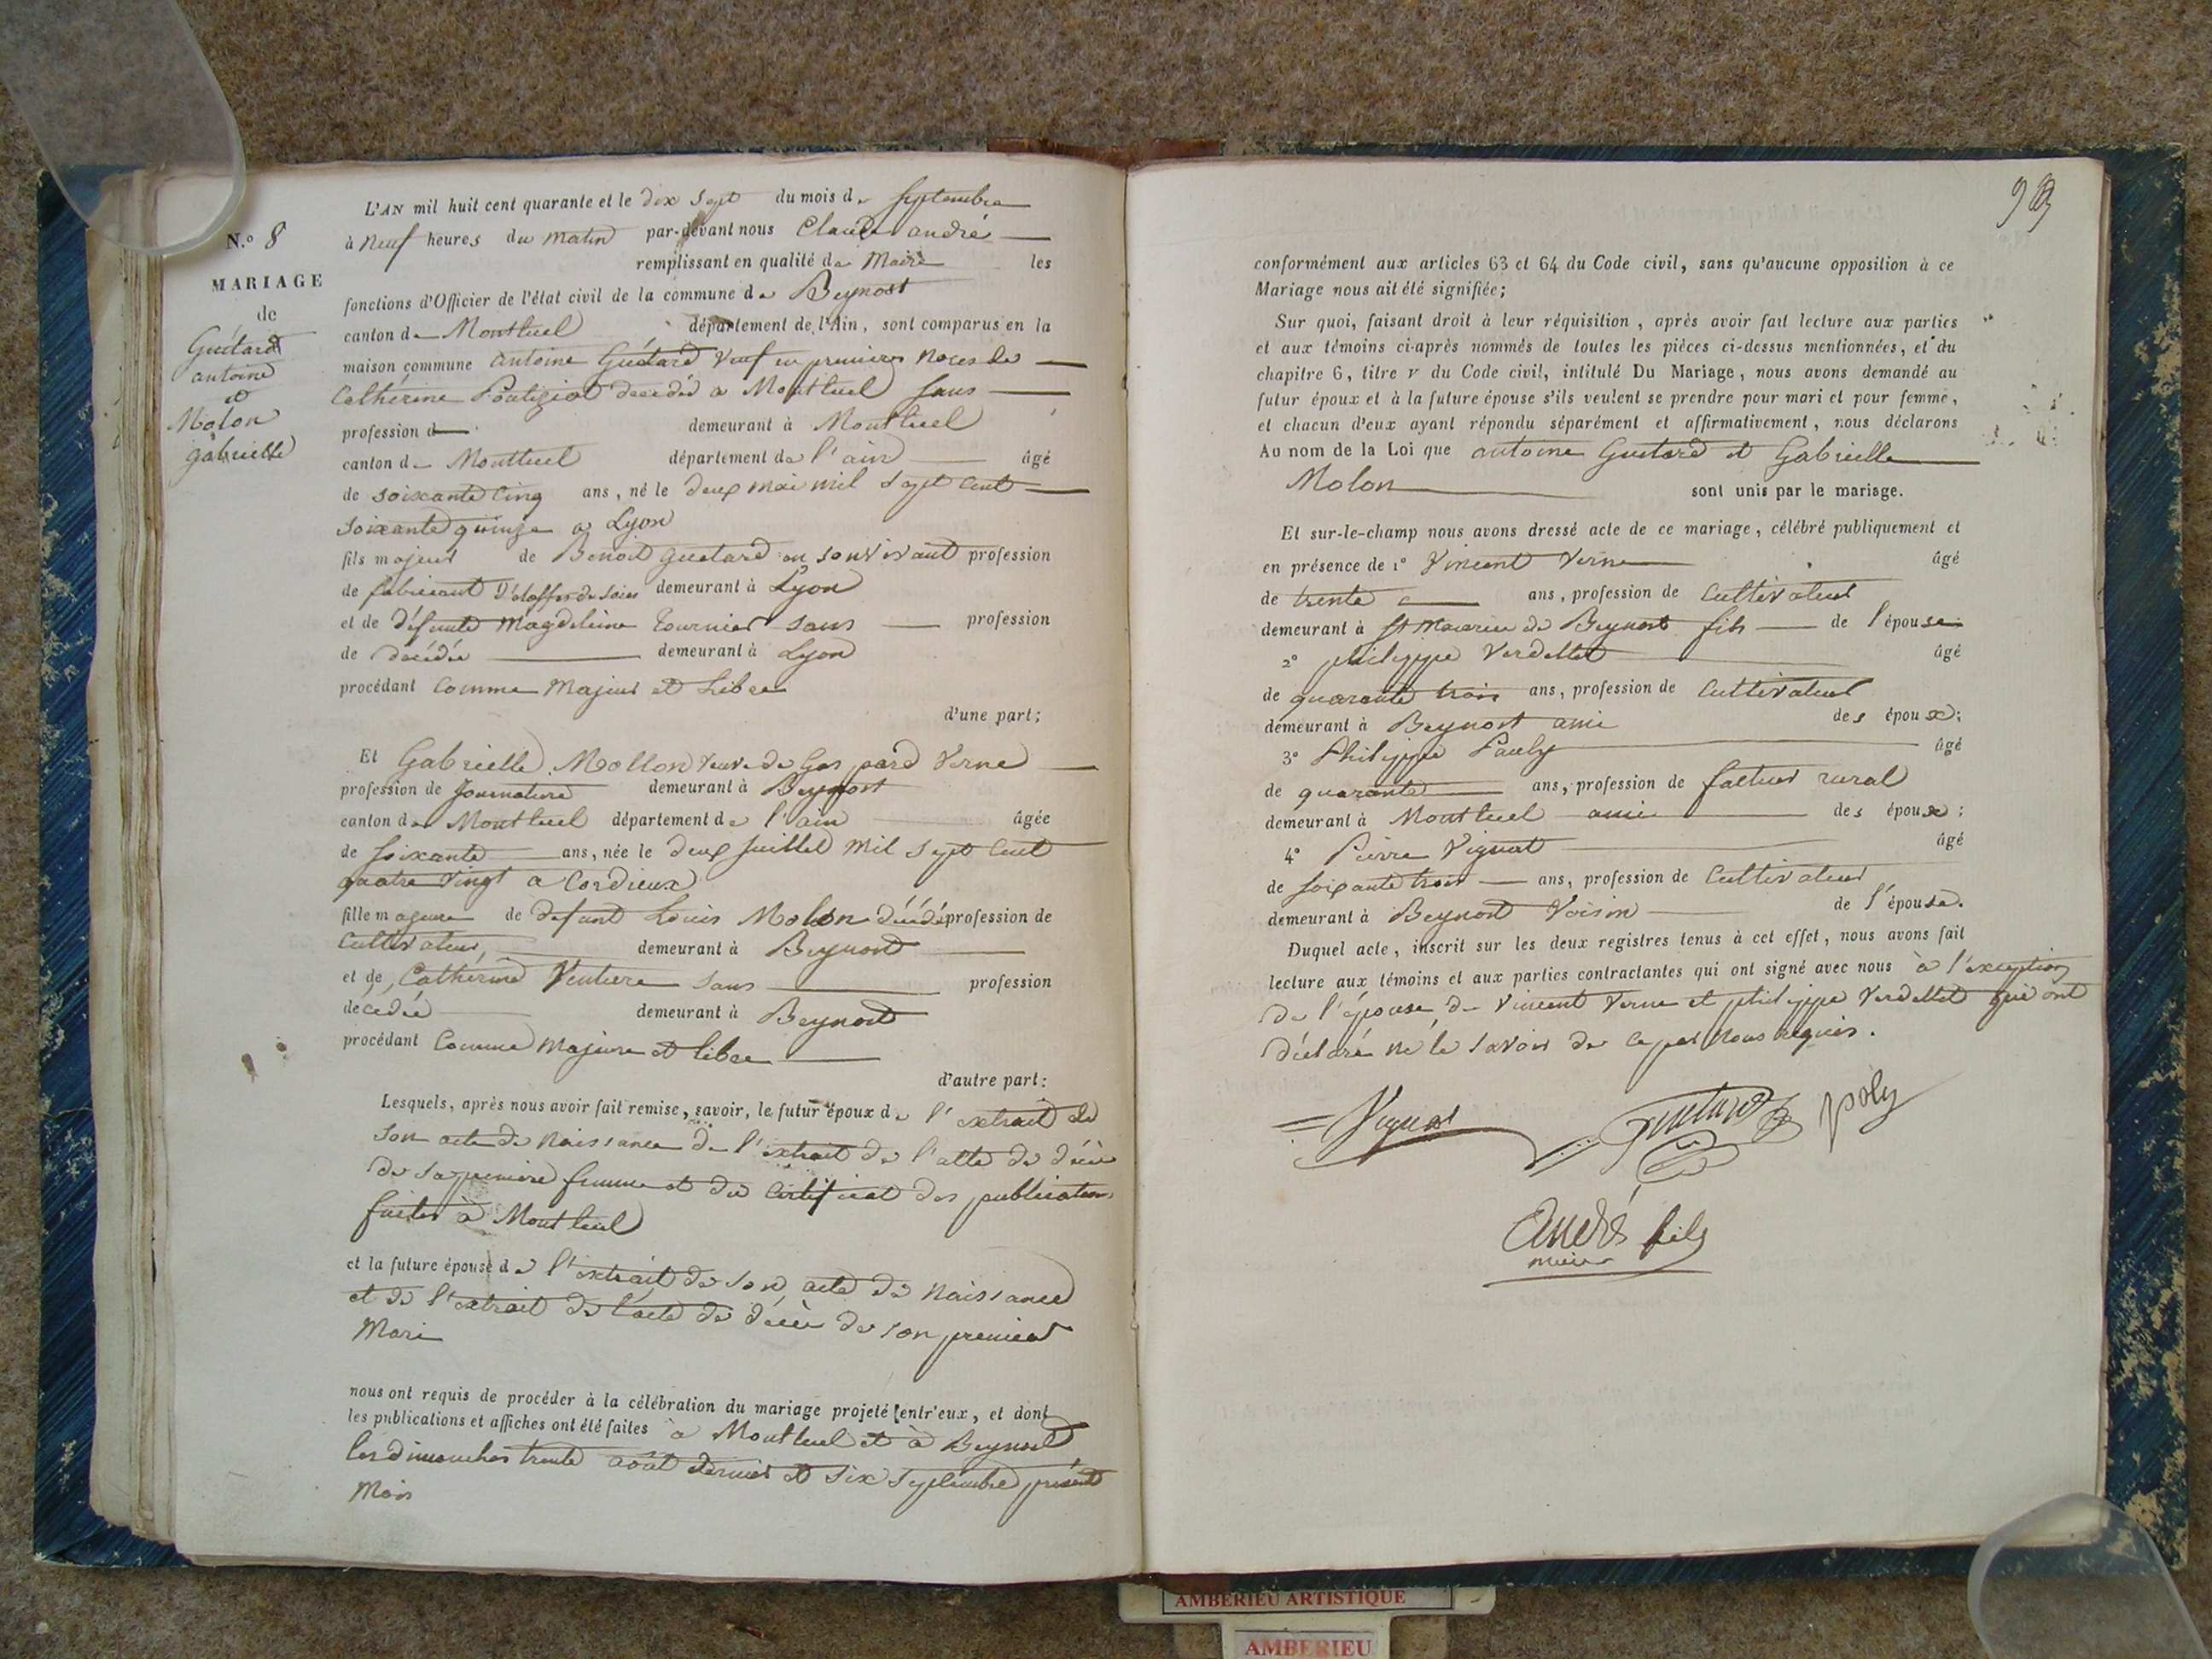 N.º 8
MARIAGE
de
Guétard
antoine
et
Molon
gabrielle
L'AN mil huit cent quarante et le dix sept du mois de septembre
à neuf heures du matin par-devant nous Claude andré
remplissant en qualité de Maire les
fonctions d'Officier de l'état civil de la commune de Beynost
canton de Montluel département de l'Ain, sont comparus en la
maison commune antoine Guétard veuf en premieres noces de
Cathérine décédée a Montluel sans
profession d demeurant à Montluel
canton de Montluel département de l'ain âgé
de soixante cinq ans, né le deux mai mil sept cent
soixante quinze a Lyon
fils majeur de Benoit guetard en son vivant profession
de fabricant d'étoffes de soies demeurant à Lyon
et de défunte Magdeleine Tournier sans profession
de décédée demeurant à Lyon
procédant comme majeur et libre
d'une part;
Et Gabrielle Mollon veuve de Gaspard Verne
profession de Journaliere demeurant à Beynost
canton de Montluel département de l'ain âgée
de soixante ans, née le deux juillet mil sept cent
quatre vingt a Cordieux
fille majeure de defunt Louis Molon décédé profession de
cultivateur demeurant à Beynost
et de Cathérine sans profession
décédée demeurant à Beynost
procédant comme majeure et libre
d'autre part:
Lesquels, après nous avoir fait remise, savoir, le futur époux de l'extrait de
son acte de naissance de l'extrait de l'acte de décès
de sa premiere femme et du certificat des publications
faites à Montluel
et la future épouse de l'extrait de son acte de naissance
et de l'extrait de l'acte de décès de son premier
mari
nous ont requis de procéder à la célébration du mariage projeté entr'eux, et dont
les publications et affiches ont été faites à Montluel et à Beynost
les dimanches trente août dernier et six septembre présent
mois
conformément aux articles 63 et 64 du Code civil, sans qu'aucune opposition à ce
Mariage nous ait été signifiée;
Sur quoi, faisant droit à leur réquisition, après avoir fait lecture aux parties
et aux témoins ci-après nommés de toutes les pièces ci-dessus mentionnées, et du
chapitre 6, titre v du Code civil, intitulé Du Mariage, nous avons demandé au
futur époux et à la future épouse s'ils veulent se prendre pour mari et pour femme,
et chacun d'eux ayant répondu séparément et affirmativement, nous déclarons
Au nom de la Loi que antoine Guetard et Gabrielle
Molon sont unis par le mariage.
Et sur-le-champ nous avons dressé acte de ce mariage, célébré publiquement et
en présence de 1º Vincent Verne âgé
de trente ans, profession de cultivateur
demeurant à St Maurice de Beynost fils de l'épouse
2º philippe Verdellet âgé
de quarante trois ans, profession de cultivateur
demeurant à Beynost ami des époux;
3º Philippe Pauly âgé
de quarante ans, profession de facteur rural
demeurant à Montluel ami des époux;
4º Pierre Vignat âgé
de soixante trois ans, profession de cultivateur
demeurant à Beynost voisin de l'épouse.
Duquel acte, inscrit sur les deux registres tenus à cet effet, nous avons fait
lecture aux témoins et aux parties contractantes qui ont signé avec nous à l'exception
de l'épouse, de Vincent Verne et philippe Verdellet qui ont
déclaré ne le savoir de ce par nous requis.
Vignat guetard poly
André fils
maire
AMBERIEU ARTISTIQUE
AMBERIEU